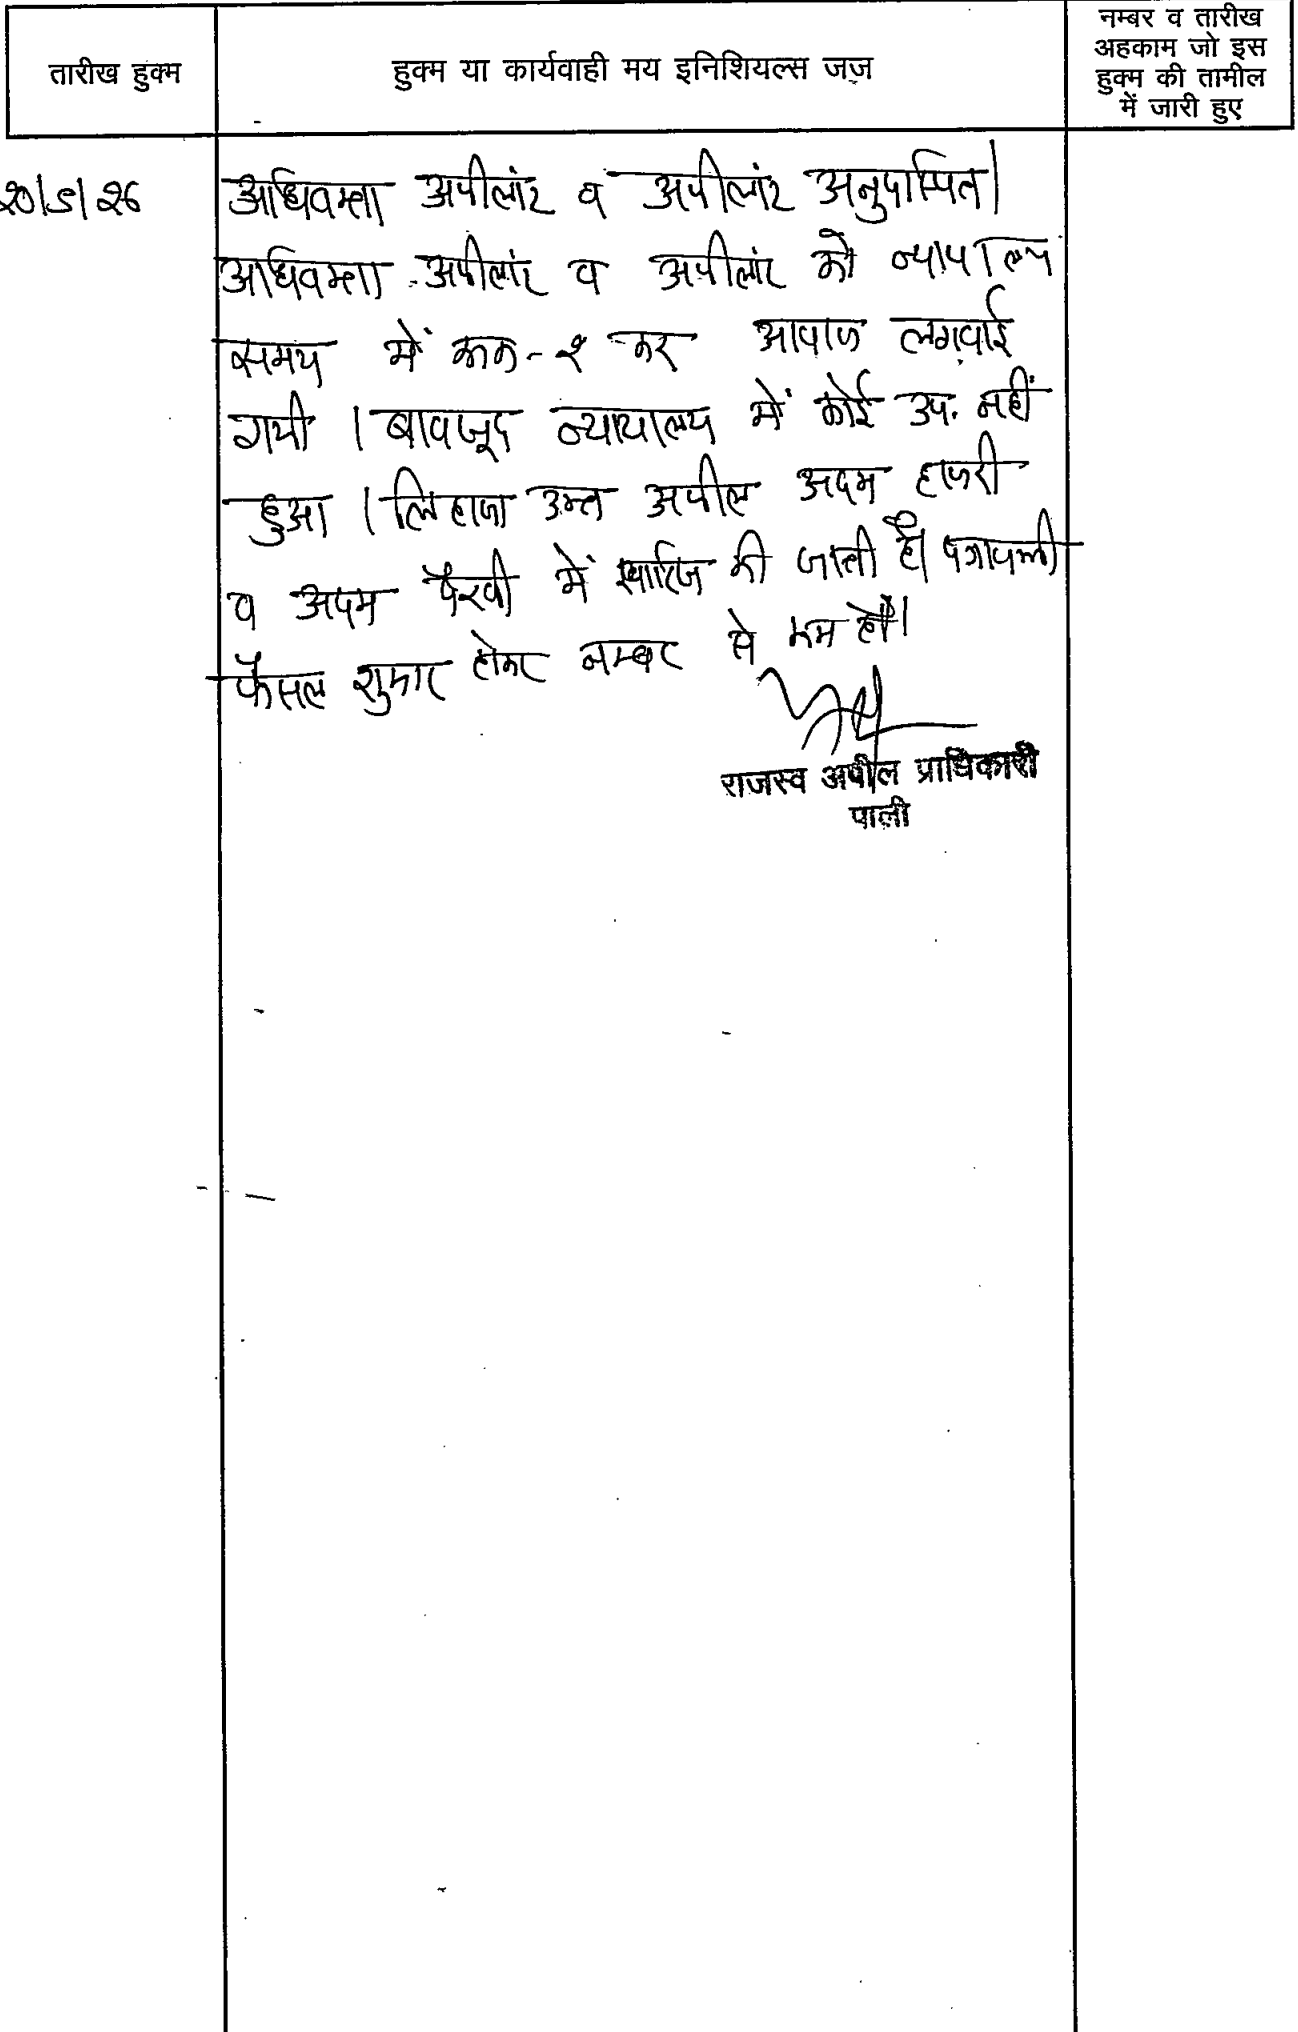 तारीख हुक्म
हुक्म या कार्यवाही मय इनिशियल्स जज़
नम्बर व तारीख
अहकाम जो इस
हुक्म की तामील
में जारी हुए
अधिवक्ता अपीलांट व अपीलांट अनुपस्थित।
अधिवक्ता अपीलांट व अपीलांट को न्यायालय
समय में रूक-२ कर आवाज लगवाई
गयी । बावजूद न्यायालय में कोई उप. नहीं
हुआ । लिहाजा उक्त अपील अदम हाजरी
व अदम पैरवी में खारिज की जाती है। पत्रावली
फैसल शुमार होकर नम्बर से कम हो।
राजस्व अपील प्राधिकारी
पाली